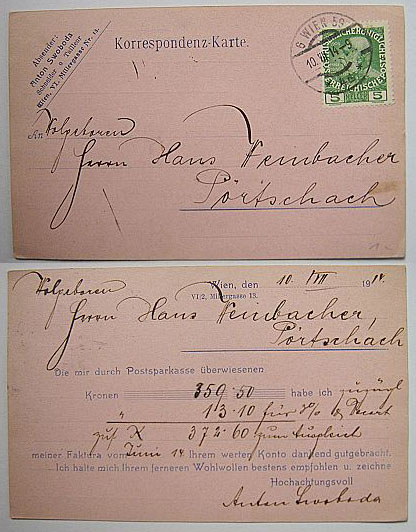 Absender:
Anton Swoboda
Schneider & Tailleur
Wien, VI. Millergasse Nr. 13.
Korrespondenz-Karte.
6 WIEN 59
10. VII
5 HELLER 5
An Wolgeboren
Herrn Hans Wembacher
Pörtschach
Wolgeboren
Wien, den 10. VII 1914.
VI/2, Millergasse 13.
Herrn Hans Wembacher,
Pörtschach
Die mir durch Postsparkasse überwiesenen
Kronen 359·50 habe ich zuzügl
" 13·10 für
zus K 372·60 zum Ausgleich
meiner Faktura vom Juni 14 Ihrem werten Konto dankend gutgebracht.
Ich halte mich Ihrem ferneren Wohlwollen bestens empfohlen u. zeichne
Hochachtungsvoll
Anton Swoboda